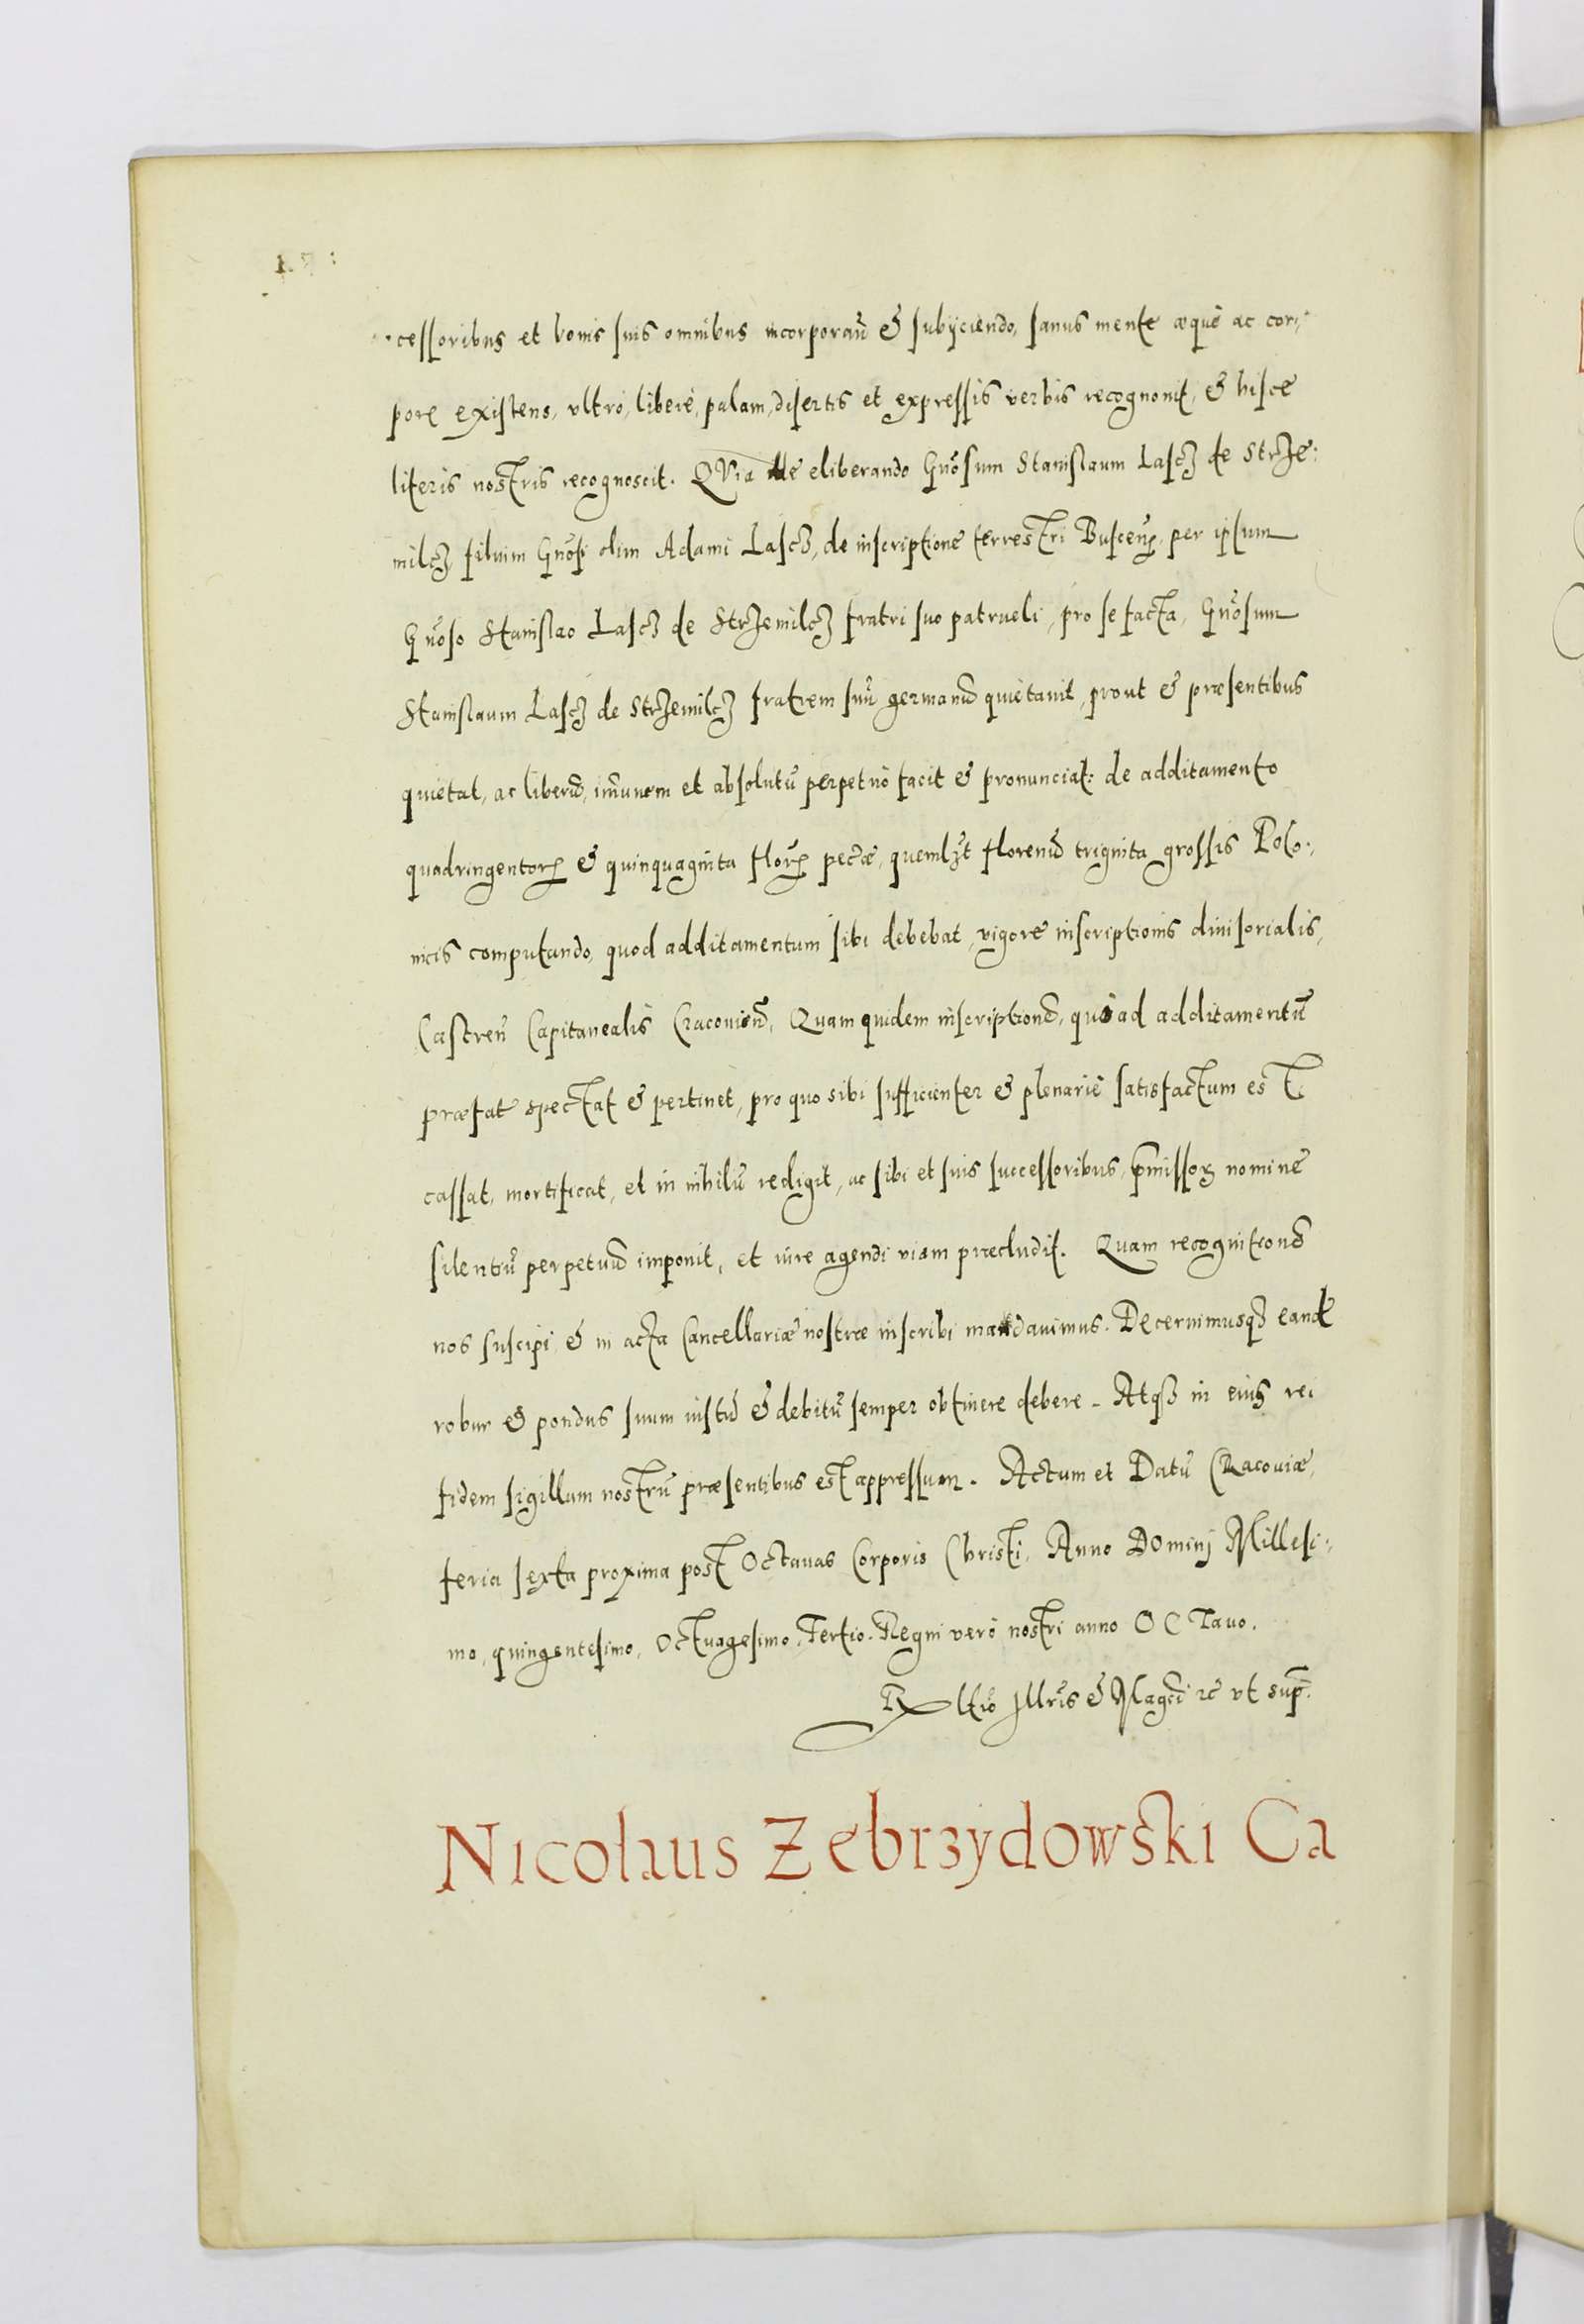 cessoribus et bonis suis omnibus incorporan̄ & subijciendo, sanus mente æquè ac cor,
pore existens, vltrò, liberè, palam, disertis et expressis verbis recognouit, & hisce
literis nostris recognoscit. QVia ille eliberando Gn̄osum Stanislaum Lascz de Strze:
milcz filium Gn̄osi olim Adami Lascz, de inscriptione terrestri Buscen̄, per ipsum
Gn̄oso Stanislao Lascz de Strzemilcz fratri suo patrueli, pro se facta, Gn̄osum
Stanislaum Lascz de Strzemilcz fratrem suū germanū quietauit, prout & præsentibus
quietat, ac liberū, im̄unem et absolutū perpetuò facit & pronunciat: de additamento
quadringentorꝝ & quinquaginta florꝝ pecūæ, quemlꝫt florenū triginta grossis Polo:,
nicis computando, quod additamentum sibi debebat, vigore inscriptionis diuisorialis,
Castren̄ Capitanealis Cracouien̄, Quam quidem inscriptionē, quoad additamentū
præfat spectat & pertinet, pro quo sibi sufficienter & plenariè satisfactum est
cassat, mortificat, et in nihilū redigit, ac sibi et suis successoribus, p̄missorꝝ nomine
silentiū perpetuū imponit, et iure agendi viam præcludit. Quam recognitionē
nos suscipi & in acta Cancellariæ nostræ inscribi mandauimus. Decernimusqꝫ eandē
robur & pondus suum iustū & debitū semper obtinere debere. Atqꝫ in eius rei
fidem sigillum nostrū præsentibus est appressum. Actum et Datū Cracouiæ,
feria sexta proxima post Octauas Corporis Christi, Anno DOminj Millesi:,
mo, quingentesimo, Octuagesimo, Tertio. Regni verò nostri anno OCTauo.
Rltio Jllris & Magci ꝛc vt sup̄.
Nicolaus Zebrzydowski Ca